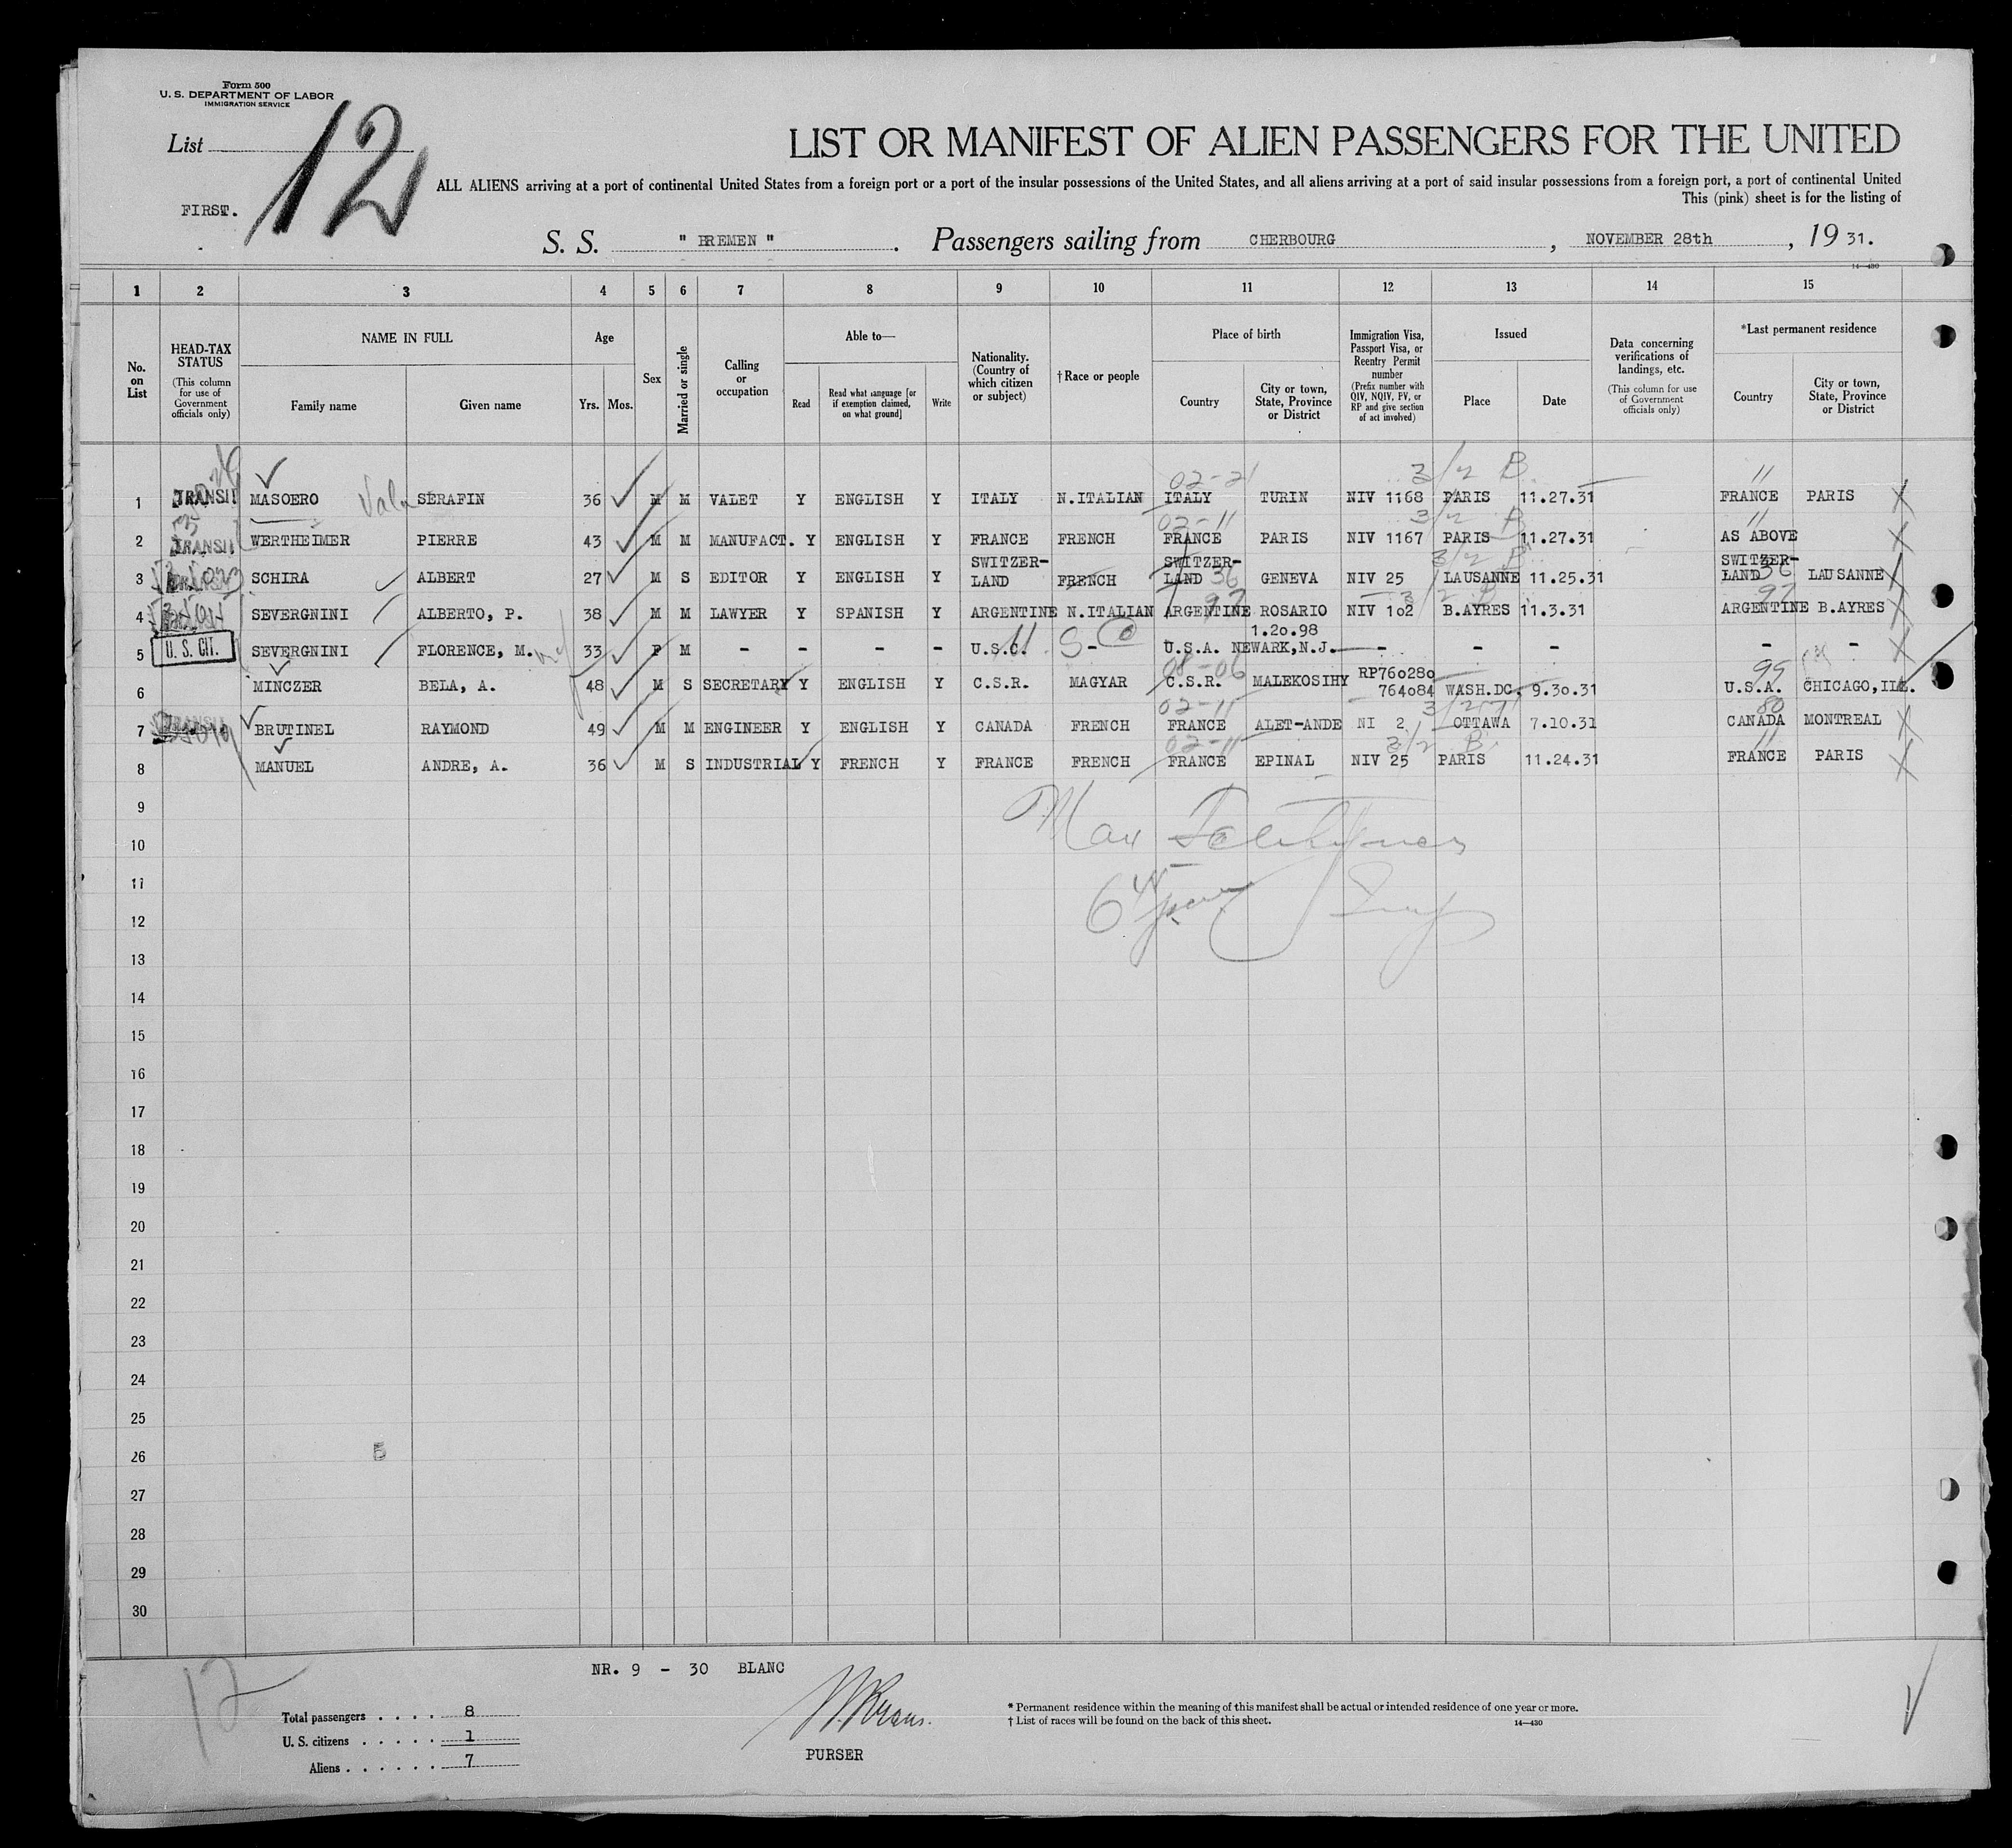 Form 500
U. S. DEPARTMENT OF LABOR
IMMIGRATION SERVICE
List 12
LIST OR MANIFEST OF ALIEN PASSENGERS FOR THE UNITED
ALL ALIENS arriving at a port of continental United States from a foreign port or a port of the insular possessions of the United States, and all aliens arriving at a port of said insular possessions from a foreign port, a port of continental United
This (pink) sheet is for the listing of
FIRST.
S. S. " BREMEN " . Passengers sailing from CHERBOURG , NOVEMBER 28th , 19 31.
14—430
1 2 3 4 5 6 7 8 9 10 11 12 13 14 15
No. on List
HEAD-TAX STATUS (This column for use of Government officials only)
NAME IN FULL
Family name Given name
Age
Yrs. Mos.
Sex
Married or single
Calling or occupation
Able to—
Read Read what language [or if exemption claimed, on what ground] Write
Nationality. (Country of which citizen or subject)
†Race or people
Place of birth
Country City or town, State, Province or District
Immigration Visa, Passport Visa, or Reentry Permit number (Prefix number with QIV, NQIV, PV, or RP and give section of act involved)
Issued
Place Date
Data concerning verifications of landings, etc. (This column for use of Government officials only)
*Last permanent residence
Country City or town, State, Province or District
02-21 3/2 B 11
1 TRANSIT MASOERO SERAFIN 36 M M VALET Y ENGLISH Y ITALY N.ITALIAN ITALY TURIN NIV 1168 PARIS 11.27.31 FRANCE PARIS X
02-11 3/2 B 11
2 TRANSIT WERTHEIMER PIERRE 43 M M MANUFACT. Y ENGLISH Y FRANCE FRENCH FRANCE PARIS NIV 1167 PARIS 11.27.31 AS ABOVE X
3/2 B
3 SCHIRA ALBERT 27 M S EDITOR Y ENGLISH Y SWITZER-LAND FRENCH SWITZER-LAND 36 GENEVA NIV 25 LAUSANNE 11.25.31 SWITZER-LAND 36 LAUSANNE X
97 3/2 B 97
4 SEVERGNINI ALBERTO, P. 38 M M LAWYER Y SPANISH Y ARGENTINE N.ITALIAN ARGENTINE ROSARIO NIV 102 B.AYRES 11.3.31 ARGENTINE B.AYRES X
1.20.98
5 U. S. CIT. SEVERGNINI FLORENCE, M. 33 F M - - - - U.S.C. - U.S.A. NEWARK,N.J. - - - - - X
08-06 RP760280 95
6 MINCZER BELA, A. 48 M S SECRETARY Y ENGLISH Y C.S.R. MAGYAR C.S.R. MALEKOSIHY 764084 WASH.DC. 9.30.31 U.S.A. CHICAGO,ILL.
02-11 80
7 TRANSIT BRUTINEL RAYMOND 49 M M ENGINEER Y ENGLISH Y CANADA FRENCH FRANCE ALET-ANDE NI 2 OTTAWA 7.10.31 CANADA MONTREAL X
02-11 3/2 B 11
8 MANUEL ANDRE, A. 36 M S INDUSTRIAL Y FRENCH Y FRANCE FRENCH FRANCE EPINAL NIV 25 PARIS 11.24.31 FRANCE PARIS X
9
Max
10
11
12
13
14
15
16
17
18
19
20
21
22
23
24
25
26
27
28
29
30
12
NR. 9 - 30 BLANC
Total passengers . . . . 8
U. S. citizens . . . . . 1
Aliens . . . . . . 7
PURSER
* Permanent residence within the meaning of this manifest shall be actual or intended residence of one year or more.
† List of races will be found on the back of this sheet.
14—430